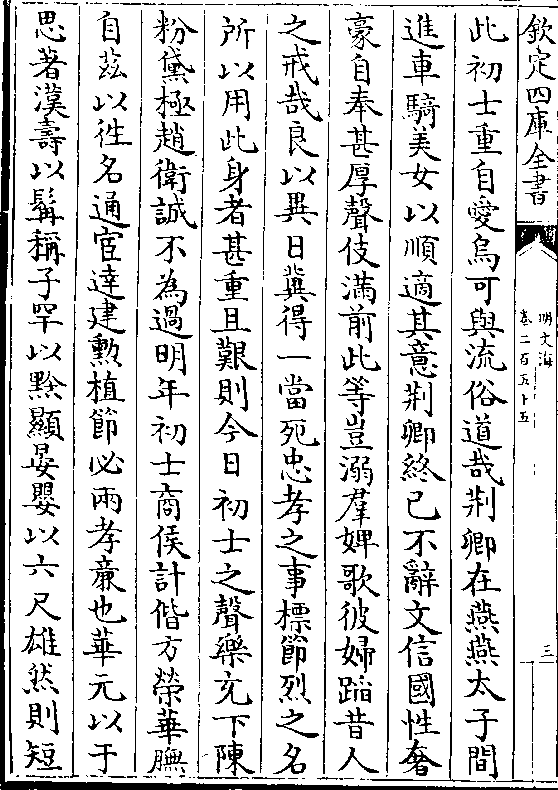 欽定四庫全書
明文海
卷二百五十五
三
此初士重自愛烏可與流俗道哉荆卿在燕燕太子間
進車騎美女以順適其意荆卿終已不辭文信國性奢
豪自奉甚厚聲伎滿前此等豈溺羣婢歌彼婦蹈昔人
之戒哉良以異日冀得一當死忠孝之事標節烈之名
所以用此身者甚重且艱則今日初士之聲樂充下陳
粉黛極趙衛誠不為過明年初士商侯計偕方榮華膴
自茲以徃名通宦達建勲植節必兩孝亷也華元以于
思著漢壽以髯稱子罕以黙顯晏嬰以六尺雄然則短